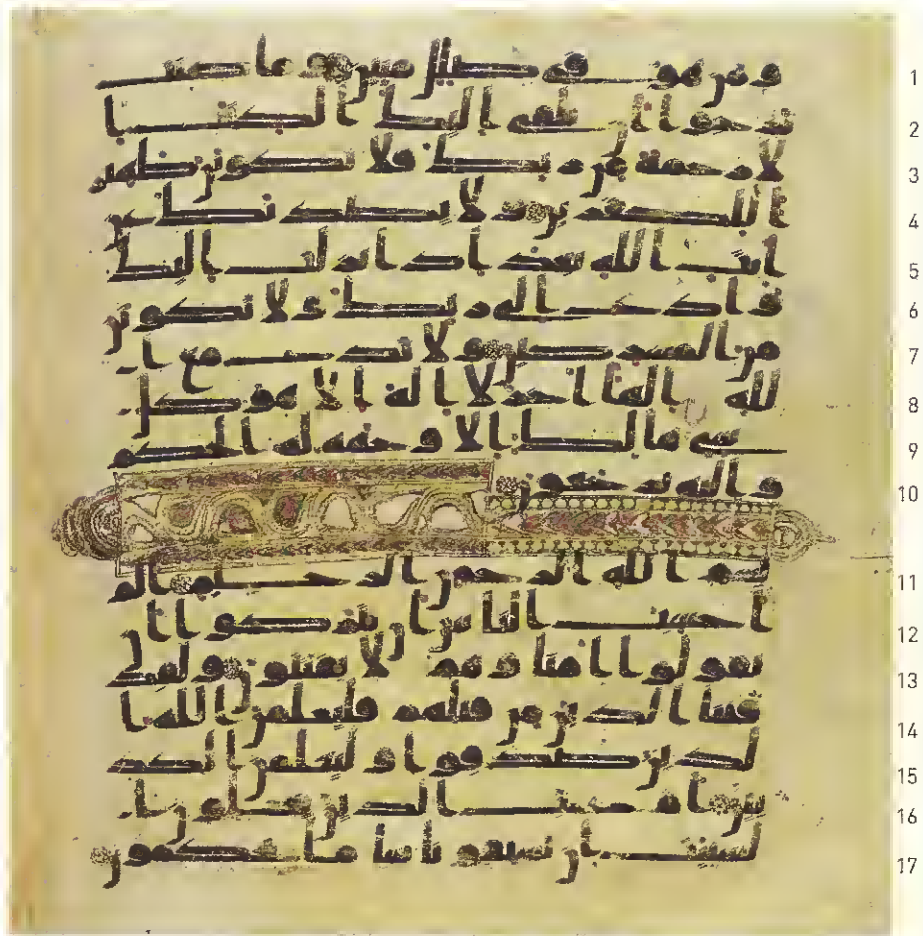 و من هو في ضلل مبين و ما كنت 1
ترجوا ان يلقى اليك الكتب ا 2
لا رحمة من ربك فلا تكونن ظهير 3
ا للكفرين و لا يصدنك عن 4
ايت الله بعد اذ انزلت اليك 5
و ادع الى ربك و لا تكونن 6
من المشركين و لا تدع مع ا 7
لله الها اخر لا اله الا هو كل 8
شي هالك الا وجهه له الحكم 9
و اليه ترجعون 10
بسم الله الرحمن الرحيم الم 11
احسب الناس ان يتركوا ان 12
يقولوا امنا و هم لا يفتنون و لقد 13
فتنا الذين من قبلهم فليعلمن الله ا 14
لذين صدقوا و ليعلمن الكذ 15
بين ام حسب الذين يعملون ا 16
لسيت ان يسبقونا سا ما يحكمون 17